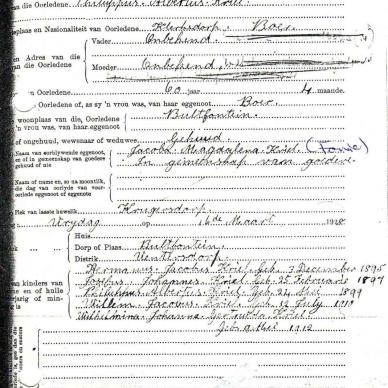 van die Oorledene Philippus Albertus Kriel
plaas en Nasionaliteit van Oorledene. Klerksdorp. Boer
Vader Onbekend
en Adres van die
van die Oorledene
Moeder Onbekend
Oorledene 60 jaar 4 maande.
Oorledene of, as sy 'n vrou was, van haar eggenoot Boer.
woonplaas van die Oorledene
'n vrou was, van haar eggenoot Bultfontein.
of ongehuud, wewenaar of weduwee. Gehuud.
Naam van eggenoot
en of in gemeenskap van goedere
gehuud of nie
Jacoba Magdalena Kriel (Fourie)
In gemeenskap vam goedere.
Naam of name en, so na moontlik,
dag van oorlyde van voor-
oorlede eggenoot of eggenote
Plek van laaste huwelik Krugersdorp.
Vrydag op 16de Maart 1928
Huis
Dorp of Plaas. Bultfontein.
Distrik Ventersdorp.
van kinders van
en of hulle
jarig of min-
is
Hermanus Jacobus Kriel Geb. 3 December 1895
Johannes Kriel Geb. 25 Februarie 1897
Albertus Kriel Geb. 24 1899
Willem Jacobus Kriel Geb. 12 July 1910
Wilhelmina Johanna Gertruida Kriel.
Geb. 9 Mei 1912